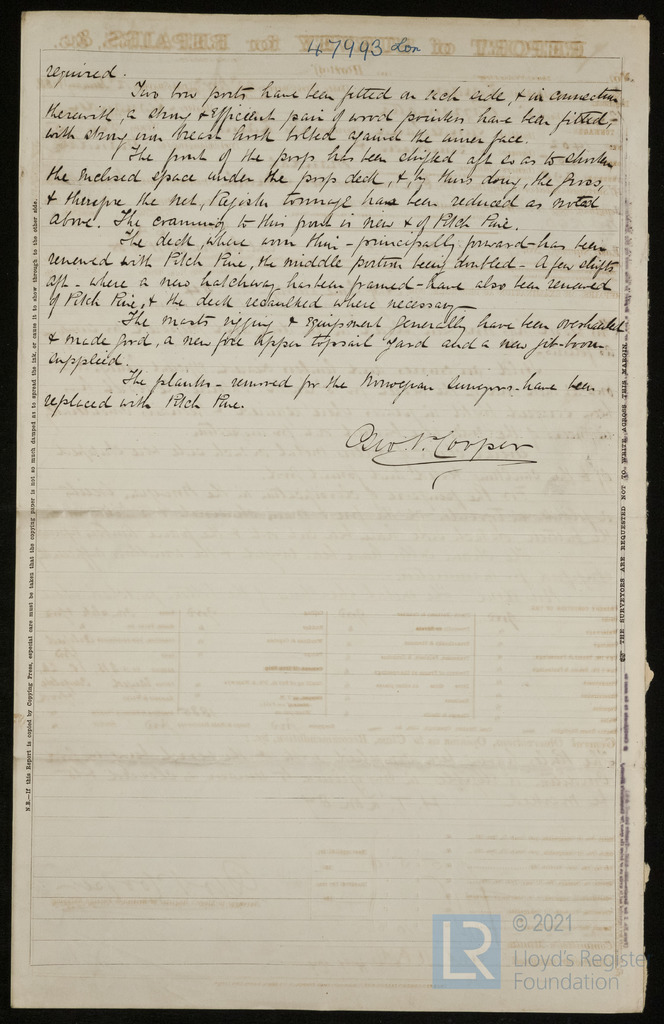 47993 Lon
required.
Two bow ports have been fitted on each side, & in connection
therewith, a strong & efficient pair of wood pointers have been fitted,
with strong iron breast hook bolted against the inner face.
The front of the poop has been shifted aft so as to shorten
the inclosed space under the poop deck, &, by thus doing, the gross,
& therefore the net, Register tonnage has been reduced as noted
above. The to this front is new & of Pitch Pine.
The deck, where worn thin - principally forward - has been
renewed with Pitch Pine, the middle portion being doubled - A few shifts
aft - where a new hatchway has been framed - have also been renewed
of Pitch Pine, & the deck recaulked where necessary -
The masts rigging & equipment generally have been overhauled
& made good, a new fore upper topsail yard and a new jib-boom
supplied.
The planks - removed for the Norwegian Surveyors - have been
replaced with Pitch Pine.
Geo. Cooper
N.B.—If this Report is copied by Copying Press, especial care must be taken that the copying paper is not so much damped as to spread the ink, or cause it to show through to the other side.
THE SURVEYORS ARE REQUESTED NOT TO WRITE ACROSS THIS MARGIN.
LR
© 2021
Lloyd's Register
Foundation